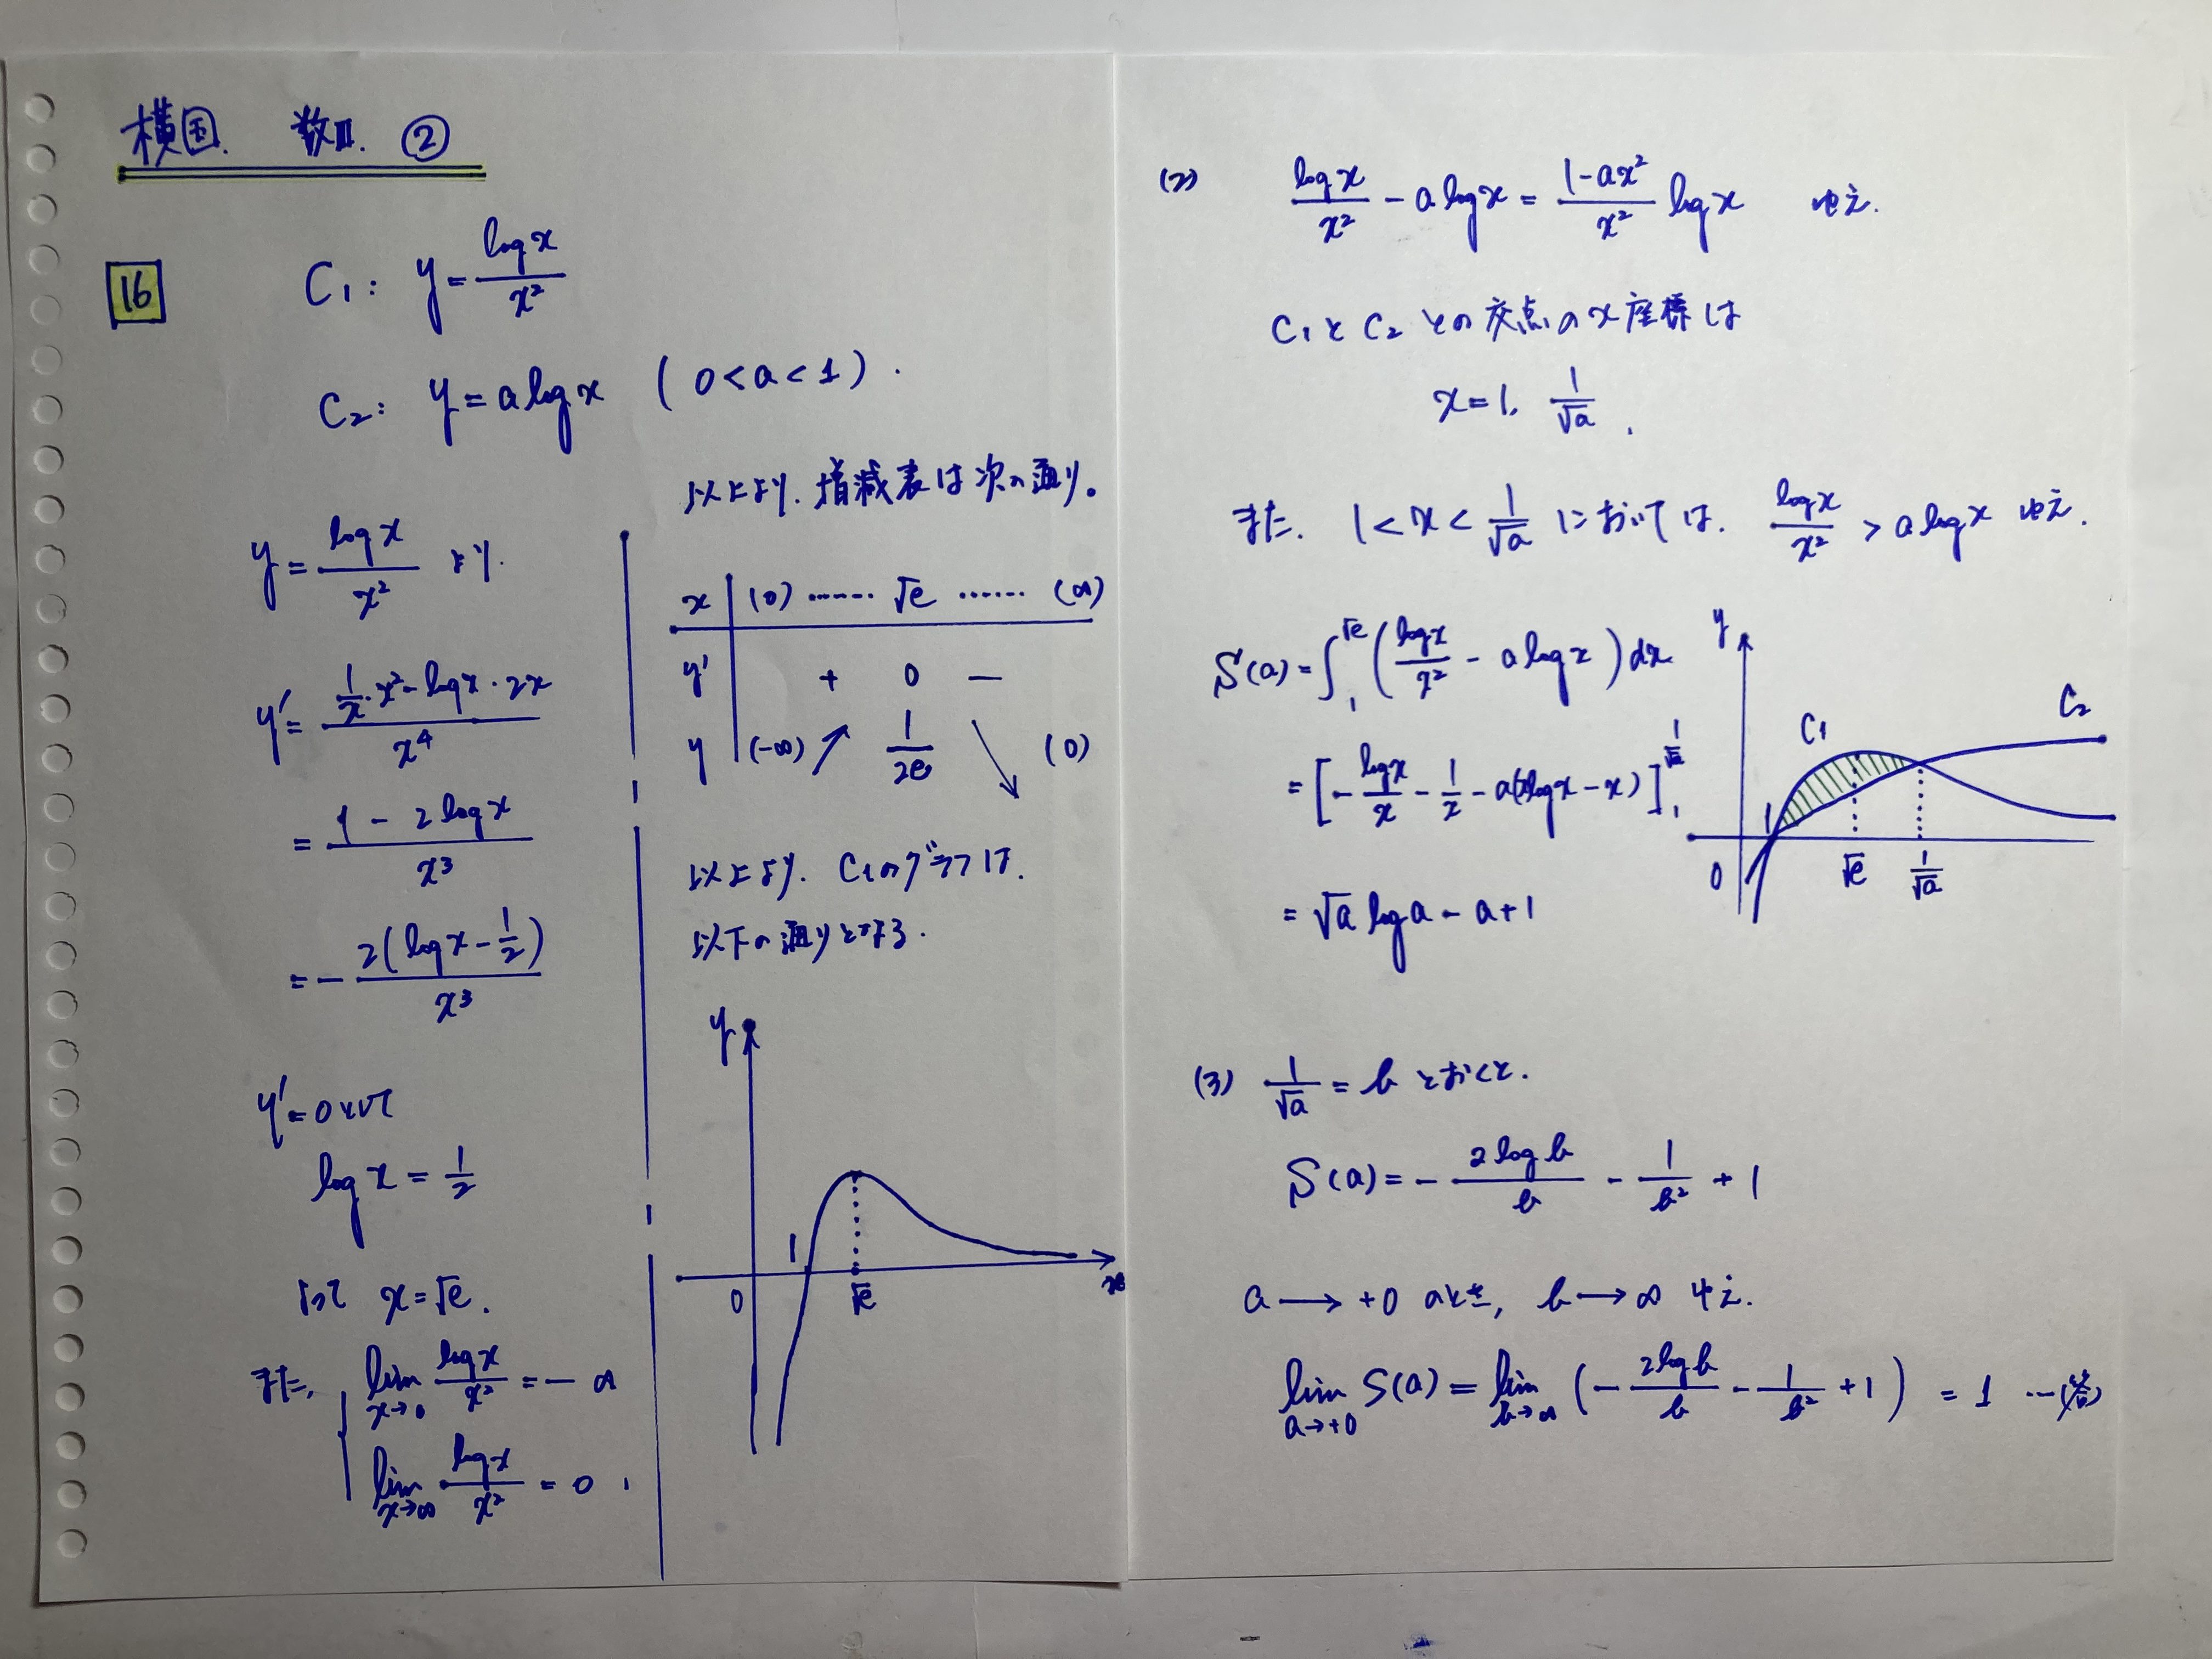 横国. 数Ⅲ. ②
16
C₁: y = log x / x²
C₂: y = a log x (0 < a < 1).
y = log x / x² より.
y' = (1/x・x² - log x・2x) / x⁴
= (1 - 2 log x) / x³
= - 2(log x - 1/2) / x³
y' = 0 として
log x = 1/2
よって x = √e.
また, lim x→0 log x / x² = -∞
lim x→∞ log x / x² = 0.
以上より. 増減表は次の通り。
x (0) …… √e …… (∞)
y' + 0 −
y (-∞) ↗ 1/2e ↘ (0)
以上より. C₁のグラフは.
以下の通りとなる.
y
1
0 √e x
(2) log x / x² - a log x = (1 - ax²) / x² log x ゆえ.
C₁とC₂との交点のx座標は
x = 1, 1/√a.
また. 1 < x < 1/√a においては. log x / x² > a log x ゆえ.
S(a) = ∫₁^√e (log x / x² - a log x) dx
= [- log x / x - 1/x - a(x log x - x)]₁^(1/√a)
= √a log a - a + 1
y
C₁ C₂
1
0 √e 1/√a
(3) 1/√a = b とおくと.
S(a) = - 2 log b / b - 1/b² + 1
a → +0 のとき, b → ∞ ゆえ.
lim a→+0 S(a) = lim b→∞ (- 2 log b / b - 1/b² + 1) = 1 …(答)